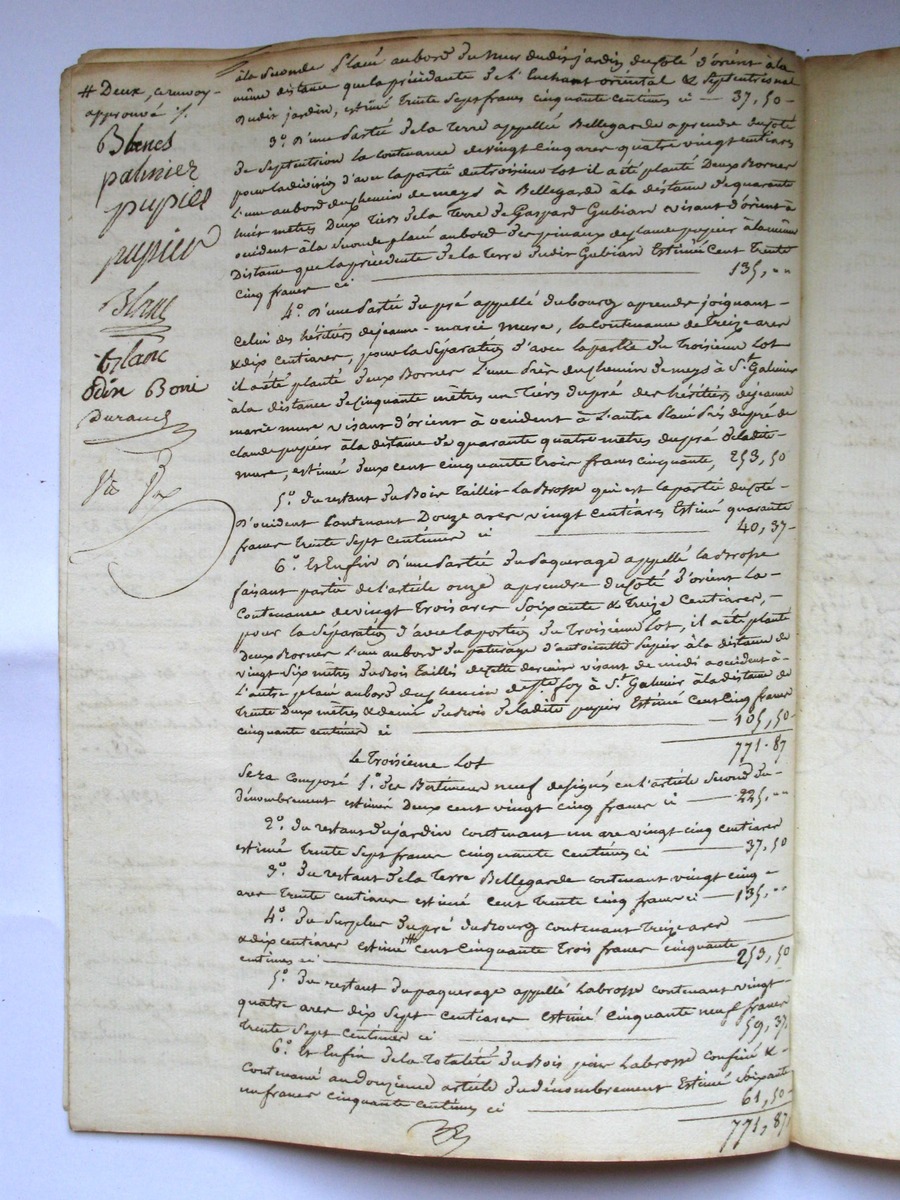 # Deux, ce renvoy
approuvé ·/.
Blanc
palmier
pupier
pupier
Blanc
blanc
Odin Boni
Durand
à la seconde placé au bord du mur dudit jardin du côté d'orient à la
même distance que la précédante de l' oriental & Septentrional
dudit jardin, estimé trente Sept francs cinquante centimes ci — 37, 50 -
3.° d'une Partie de la terre appellée Bellegarde a prendre du côté
de Septentrion la contenance de vingt cinq ares quatre vingt centiares
pour la division d'avec la partie du troisieme lot il a été planté Deux Bornes
L'une au bord du chemin de meys à Bellegarde à la distance de quarante
huit mètres Deux tiers de la terre de Gaspard Gubian visant d'orient à
occident à la seconde placé au bord des de claude pupier à la même
Distance que la précédente de la terre dudit Gubian Estimée cent trente
cinq francs ci — 135, "
4.° d'une Partie du pré appellé du bourg a prendre joignant -
Celui des héritiers de jeanne-marie mure, la contenance de treize ares
& dix centiares, pour la Séparation d'avec la partie du troisieme Lot
il a été planté deux Bornes L'une Près du chemin de meys à S.t Galmier
à la distance de cinquante mètres un tiers du pré des héritiers de jeanne
marie mure visant d'orient à occident à L'autre placé Près du pré de
claude pupier à la distance de quarante quatre mètres du pré de ladite -
mure, estimée deux cent cinquante trois francs cinquante, 253, 50
5.° du restant du Bois taillis La Brosse qui est la partie du côté -
d'occident contenant Douze ares vingt centiares Estimé quarante
francs trente sept centimes ci — 40, 37 -
6.° Et Enfin d'une Partie du paquerage appellé la Brosse
faisant partie de l'article onze a prendre du côté d'orient La -
Contenance de vingt trois ares Soixante & treize centiares, -
pour la Séparation d'avec la portion du troisieme Lot, il a été planté
deux Bornes L'une au bord du paturage d'antoinette pupier à la distance de
vingt Six mètres du Bois taillis de cette derniere visant de midi a occident à -
L'autre placé au bord du chemin de S.te foy à S.t Galmier à la distance de
trente deux mètres & demi du Bois de ladite pupier Estimé Cent Cinq francs
cinquante centimes ci — 105, 50 -
771 · 87
Le troisieme Lot
Sera composé 1.° des Batiments neuf designés en l'article Second du -
dénombrement estimés deux cent vingt cinq francs ci — 225, "
2.° du restant du jardin contenant un are vingt cinq centiares
estimé trente Sept francs cinquante centimes ci — 37, 50
3.° du restant de la terre Bellegarde contenant vingt cinq -
ares trente centiares estimé cent trente cinq francs ci — 135, "
4.° du Surplus du pré du Bourg contenant treize ares —
& dix centiares estimé # cent cinquante trois francs cinquante
centimes ci — 253, 50
5.° du restant du paquerage appellé Labrosse contenant vingt -
quatre ares dix Sept centiares Estimé cinquante neuf francs
trente Sept centimes ci — 59, 37.
6.° Et Enfin de la totalité du Bois pin Labrosse confiné & -
Contenancé au Douzieme article du dénombrement Estimé Soixante
un francs cinquante centimes ci — 61, 50 -
771, 87